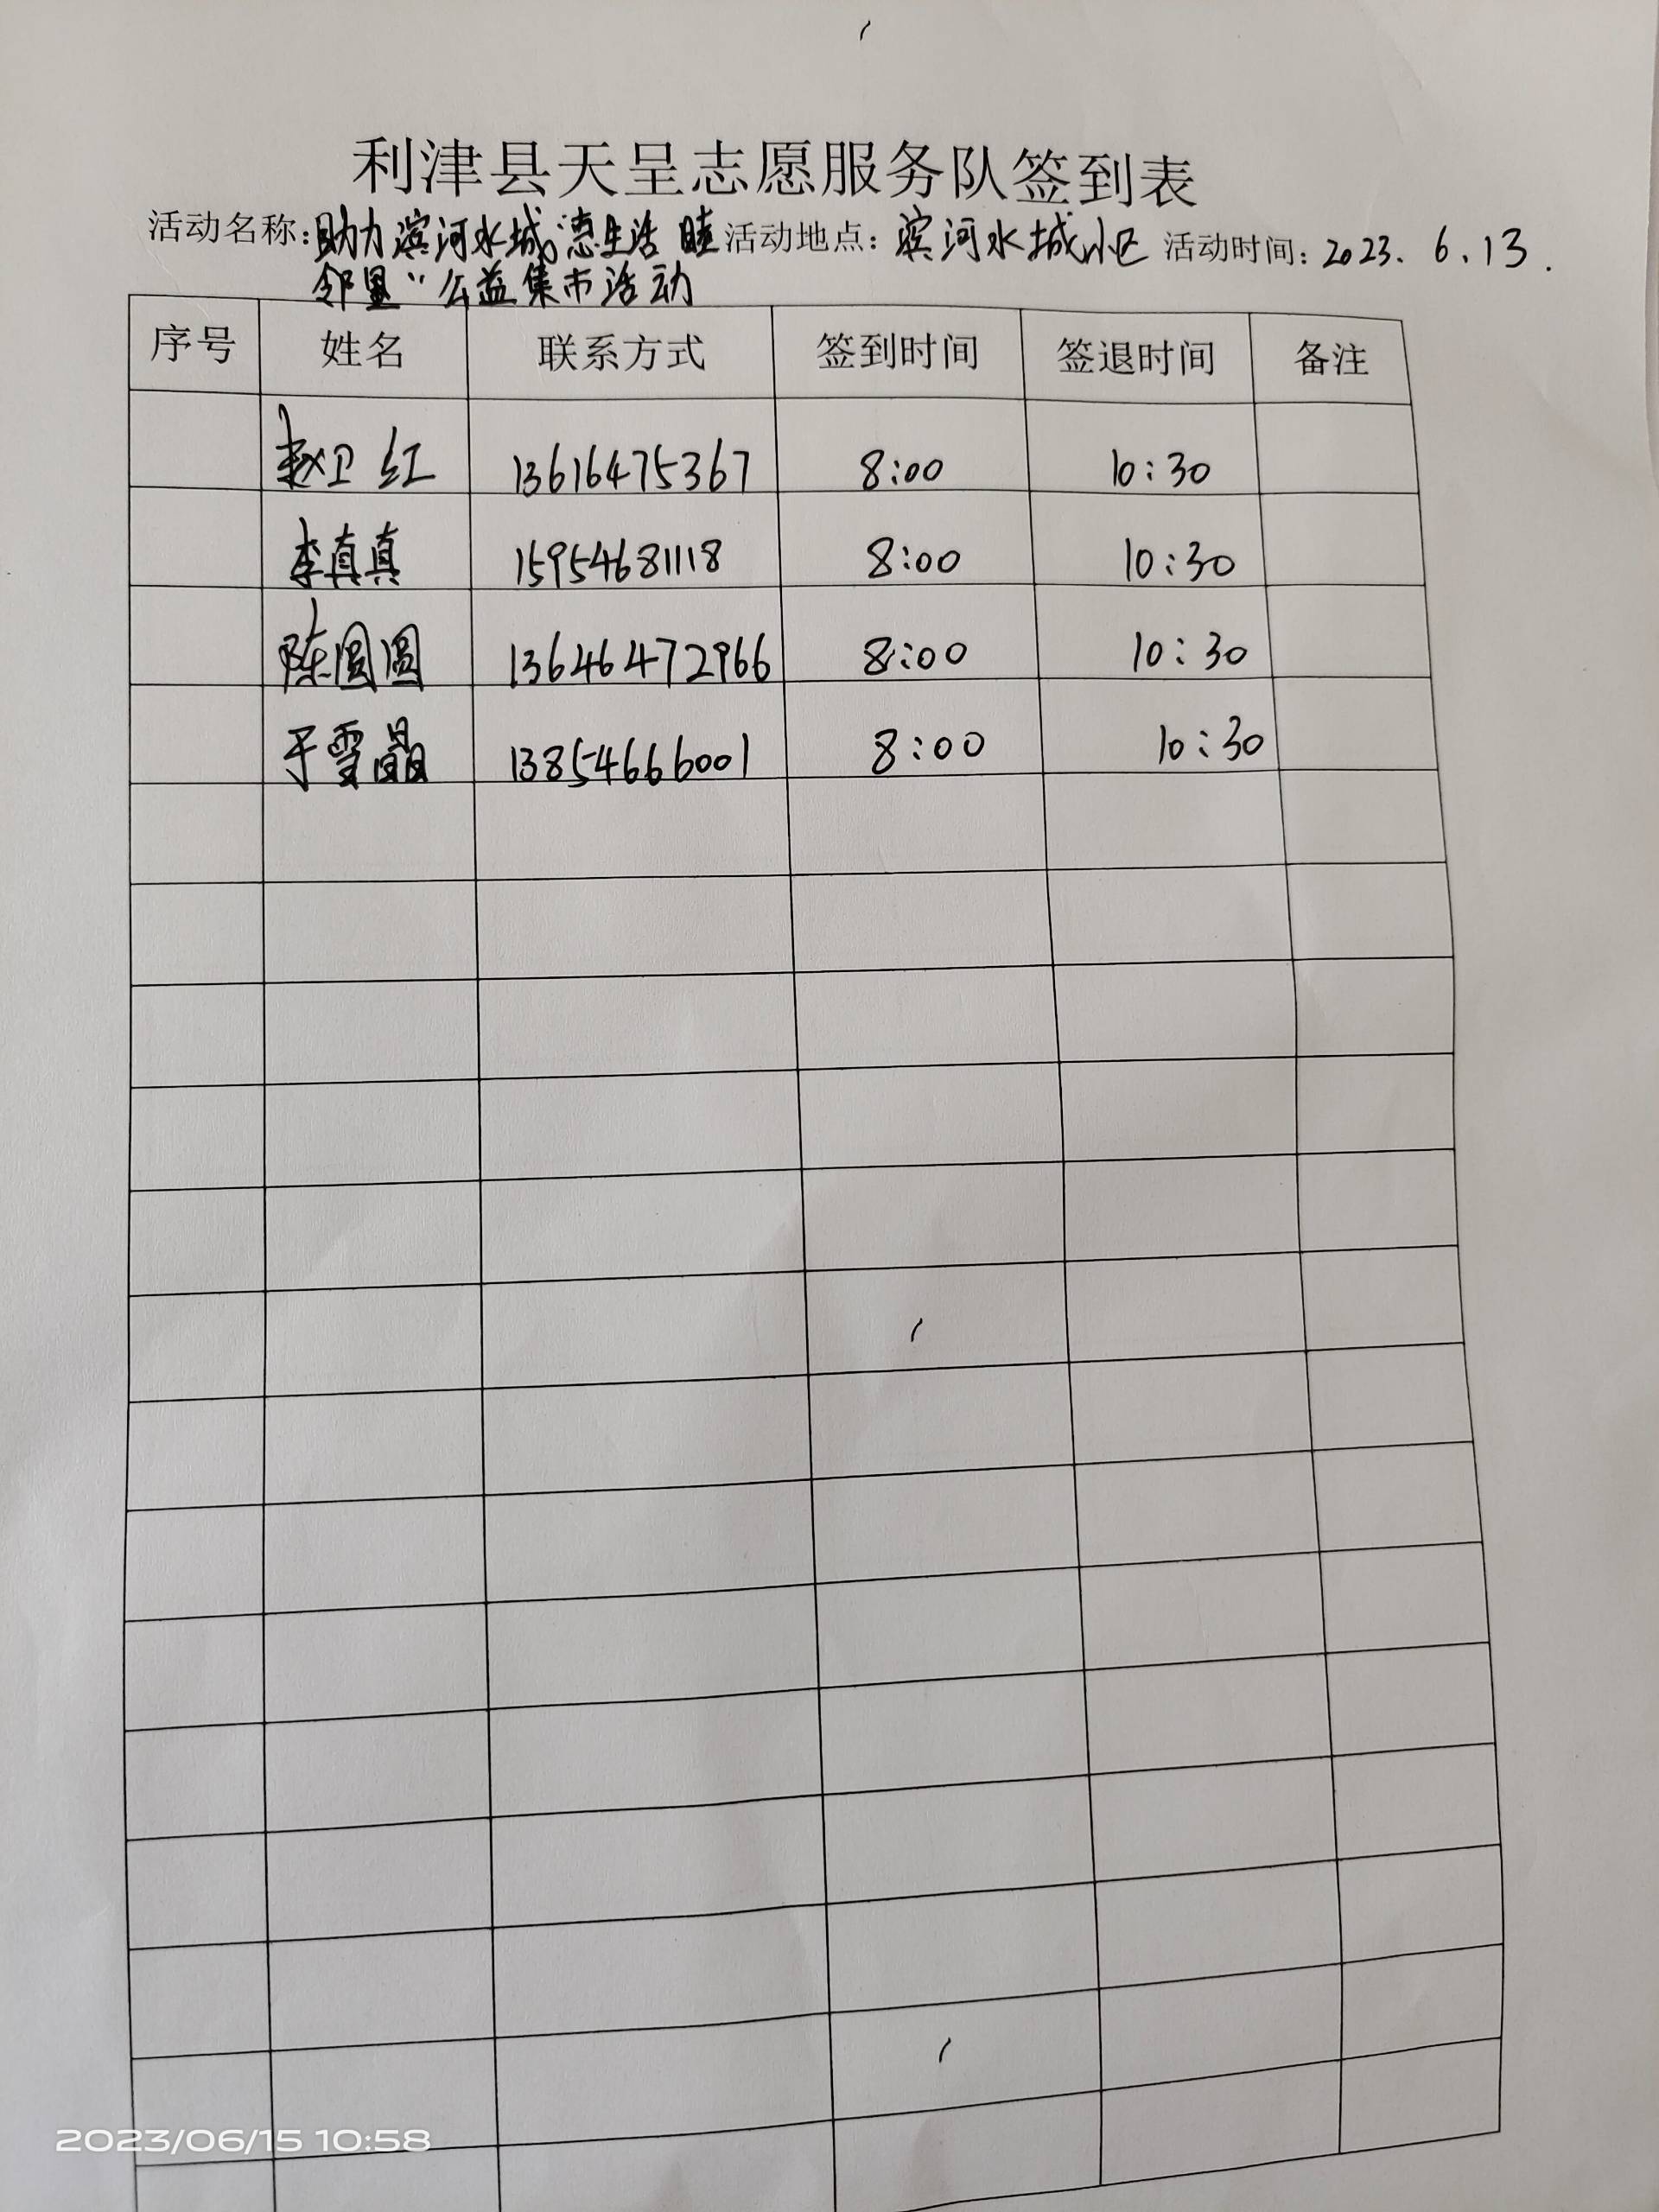 利津县天呈志愿服务队签到表
活动名称:助力滨河水城"惠生活 睦 活动地点: 滨河水城小区 活动时间: 2023. 6. 13.
邻里"公益集市活动
序号 姓名 联系方式 签到时间 签退时间 备注
赵卫红 13616475367 8:00 10:30
李真真 15954681118 8:00 10:30
陈圆圆 13646472966 8:00 10:30
于雪晶 13854666001 8:00 10:30
2023/06/15 10:58